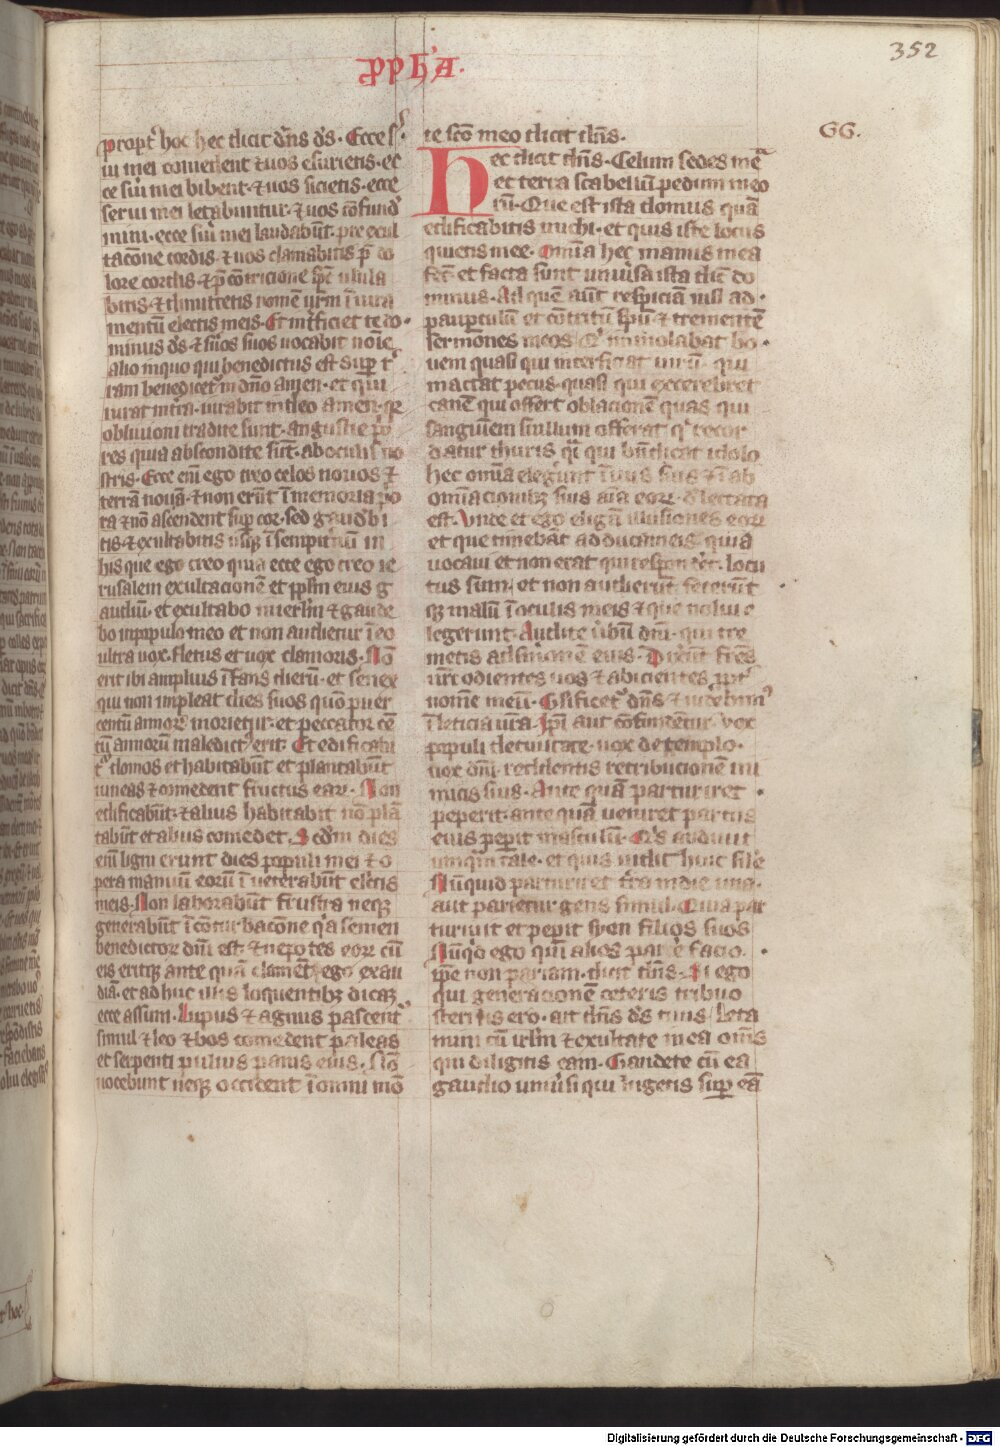 pph'a.
352
ꝓpt' hoc hec dicit dn̄s ds̄. Ecce s'
ui mei comedent ⁊ uos esurietis. ec
ce sui mei bibent. ⁊ uos sicietis. ecce
serui mei letabuntur. ⁊ uos cōfund
mini. ecce sui mei laudabūt. pre exul
tacōne cordis. ⁊ uos clamabitis p̄ do
lore cordis. ⁊ p̄ cōtricione sp̄c ulula
bitis. ⁊ dimittetis nomē ur̄m ī iura
mentū electis meis. Et int'ficiet te do
minus ds̄ ⁊ suos suos uocabit noīe
alio in quo qui benedictus est sup t'
ram benedicet' in dn̄o amen. et qui
iurat in t'ra. iurabit in deo amen. qr
obliuioni tradite sunt. angustie p'o
res quia abscondite sūt. ab oculis no
stris. Ecce em̄ ego creo celos nouos ⁊
terrā nouā. ⁊ non erūt ī memoria p'o
ra ⁊ nō ascendent sup cor. sed gaud'bi
tis. ⁊ exultabitis usq ī sempit'nū in
his que ego creo quia ecce ego creo ie
rusalem exultacionē et pplm eius g
audiū. et exultabo in ierlm ⁊ gaude
bo in populo meo et non audietur ī eo
ultra uox fletus et uox clamoris. Nō
erit ibi amplius īfans dierū. et senex
qui non impleat dies suos quō puer
centū annor' morietur. et peccator cē
tū annorū maledict' erit. Et edificabū
t' domos et habitabūt et plantabūt
uineas ⁊ comedent fructus earꝝ. Non
edificabūt. ⁊ alius habitabit nō plā
tabūt et alius comedet. Scdm dies
em̄ ligni erunt dies populi mei ⁊ o
pera manuū eorū īueterabūt electis
meis. Non laborabūt frustra neqꝫ
generabūt ī conturbacōne qa semen
benedictor dn̄i est. ⁊ nepotes eorꝝ cū
eis eritqꝫ ante quā clamēt ego exau
diā. et adhuc illis loquentibꝫ dicaꝫ
ecce assum. Lupus ⁊ agnus pascent'
simul ⁊ leo ⁊ bos comedent paleas
et serpenti puluis panis eius. Nō
nocebunt neqꝫ occident ī omni mō
te scō meo dicit dn̄s.
GG.
Hec dicit dn̄s. Celum sedes mea
et terra scabellū pedum meo
rū. Que est ista domus quā
edificabitis michi. et quis iste locus
quietis mee. Omīa hec manus mea
fec̄ et facta sunt uniusa ista dic̄ do
minus. Ad quē aūt respiciā nisi ad
pauperculū et cōtritū spū ⁊ trementē
sermōnes meos. Q' immolabat bo
uem quasi qui interficiat uirū. qui
mactat pecus. quasi qui excerebret
canē qui offert oblacionē quasi qui
sanguinem suillum offerat. q' recor
datur thuris qi qui bn̄dicat idolo
hec omīa elegerunt ī uiis suis ⁊ ī ab
omīacionibꝫ suis aīa eorꝝ d'lectata
est. Unde et ego eligā illusiones eorꝝ
et que timebāt adducam eis. quia
uocaui et non erat qui respond'et. locu
tus sum. et non audierūt. fecerūt
qꝫ malū ī oculis meis ⁊ que nolui e
legerunt. Audite ubū dn̄i. qui tre
metis ad smonē eius. Dixerūt fres
uri odientes uos ⁊ abicientes ppt'
nomē meū. Glificet' dn̄s ⁊ uidebim'
ī leticia ur̄a. Ipi aūt cōfundētur. vox
populi de ciuitate. uox de templo.
uox dn̄i. reddentis retribucionē ini
micis suis. Ante quā parturiret
peperit. ante quā ueniret partus
eius peperit masculū. Q's audiuit
umqm tale. et quis uidit huic sile
Nūquid parturiet t'ra in die una.
aut parietur gens simul. Quia par
turiuit et peperit syon filios suos
Nūqd ego qui alios parere facio.
ipe non pariam. dicit dn̄s. Si ego
qui generacionē ceteris tribuo
sterilis ero. ait dn̄s ds̄ tuus. Leta
mini cū irlm ⁊ exultate in ea omēs
qui diligitis eam. Gaudete cū ea
gaudio uniusi qui lugetis sup eā
Digitalisierung gefördert durch die Deutsche Forschungsgemeinschaft - DFG